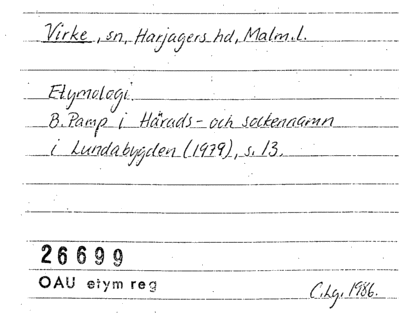 Virke, sn, Harjagers hd, Malm.l.
Etymologi.
B. Pamp i Härads- och sockennamn
i Lundabygden (1979), s. 13.
26699
OAU etym reg
C.Lg. 1986.